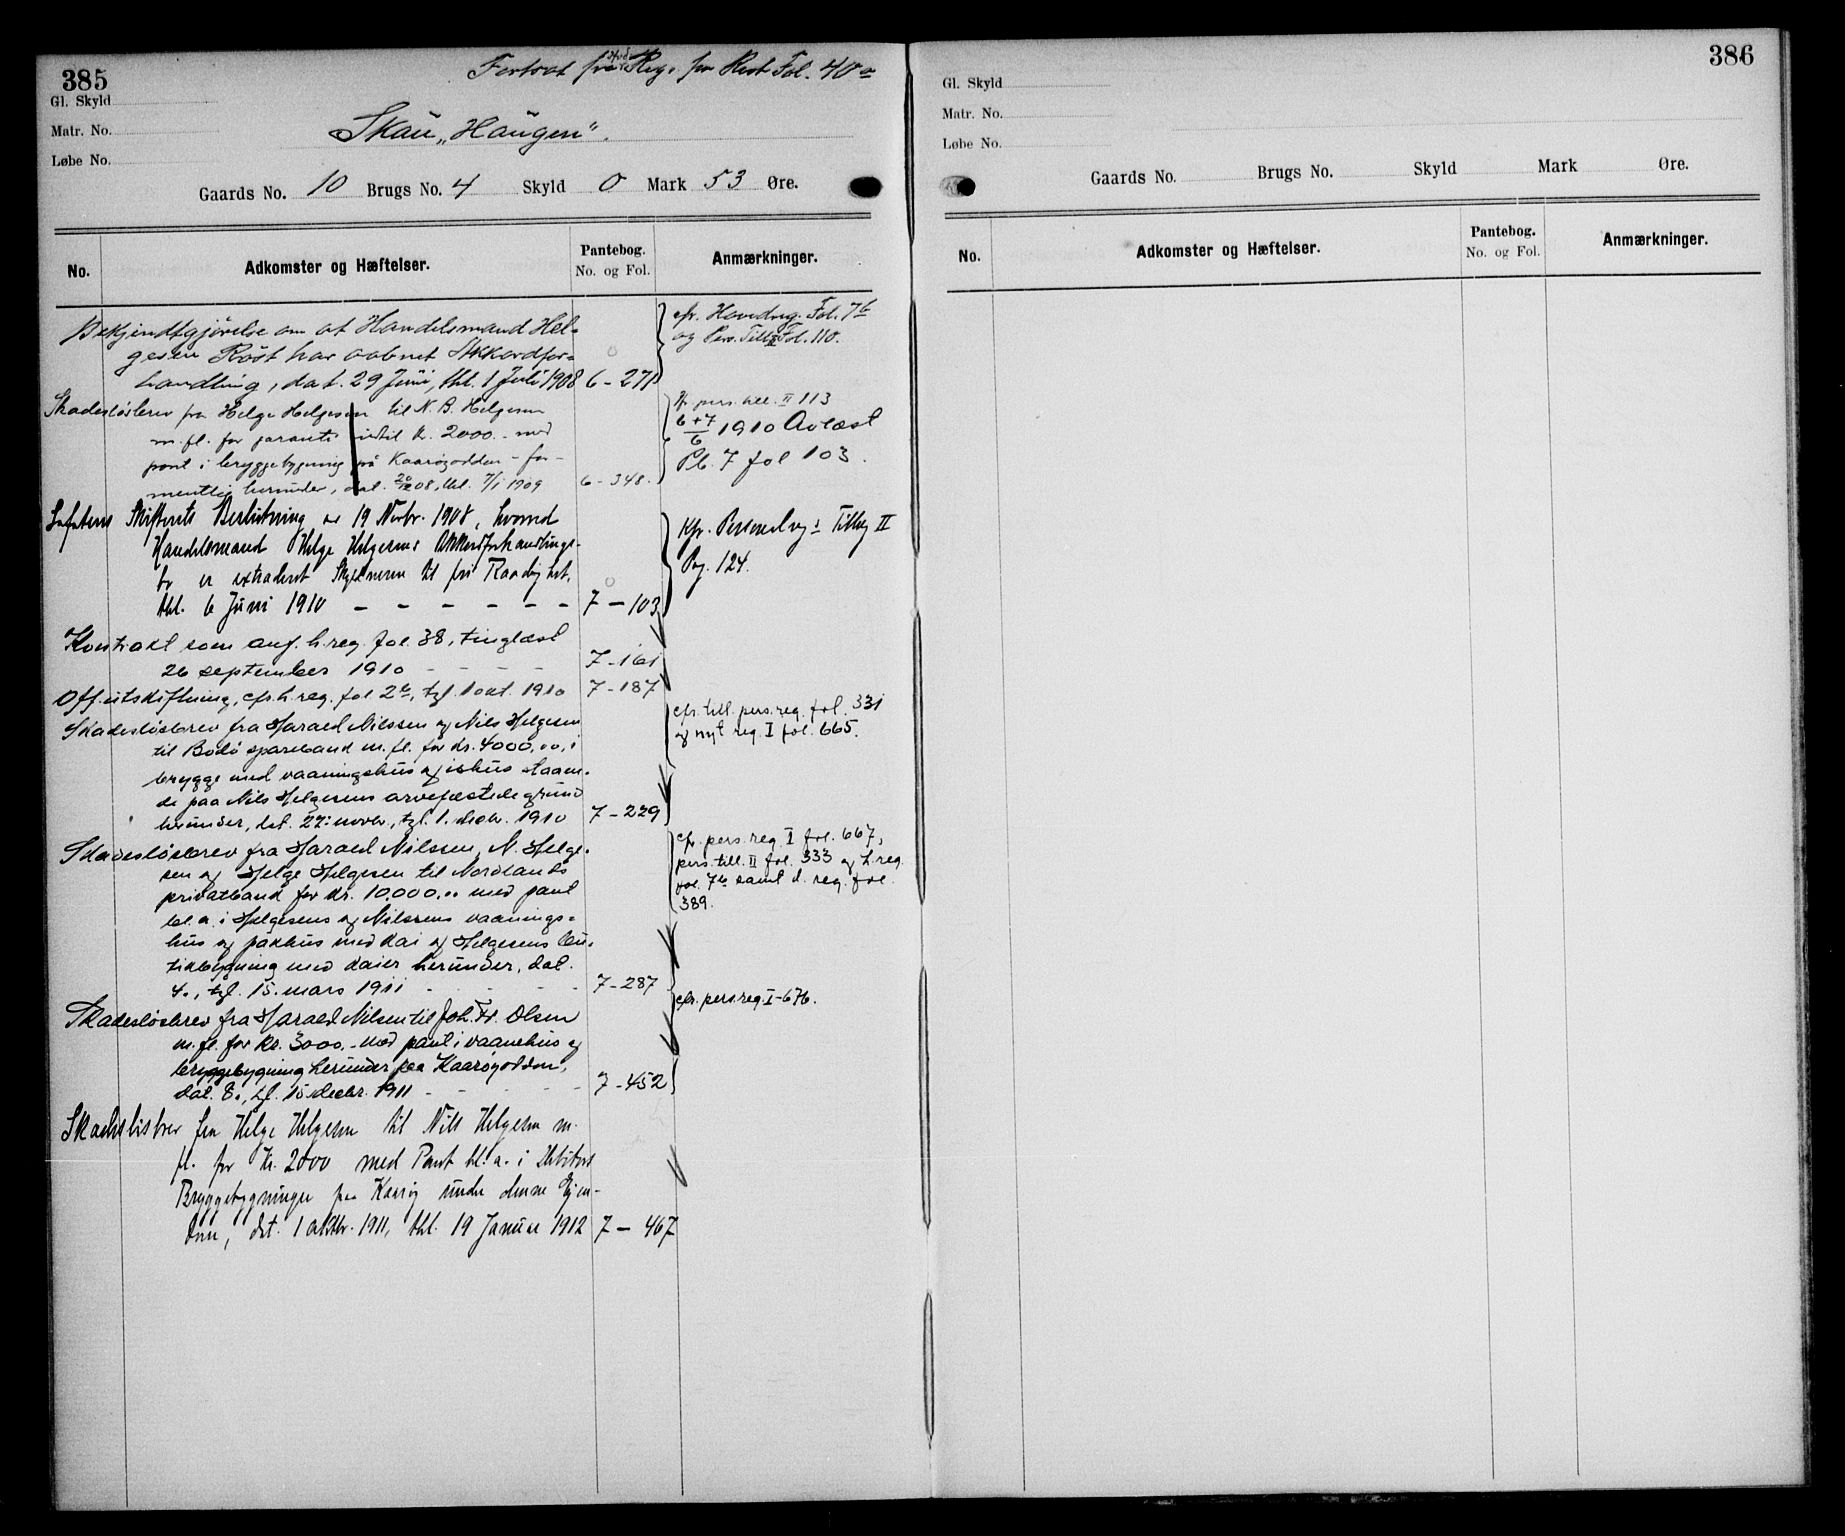 385
Fortsat fra Hoved Reg. for Røst Fol. 40 a
Gl. Skyld
Matr. No. Skau "Haugen".
Løbe No.
Gaards No. 10 Brugs No. 4 Skyld 0 Mark 53 Øre.
No. Adkomster og Hæftelser. Pantebog. No. og Fol. Anmærkninger.
Bekjendtgjörelse om at Handelsmand Hel-
gesen Röst har aabnet Akkordfor-
handling, dat. 29 Juni, thl. 1 Juli 1908 6-271
cfr. Hovedreg. Fol. 7b
og Pers. Till. II Fol. 110.
Skadesløsbrev fra Helge Helgesen til N. B. Helgesen
m. fl. for garanti indtil kr. 2000.- med
pant i bryggebygning på Kaarøgodden - for-
mentlig herunder, dat. 20/12 08, thl. 7/1 1909 6-348.
pers. till. II 113
6+7/6 1910 Avlæst
Pb. 7 fol 103.
Lofotens Skifterets Beslutning av 19 Novbr. 1908, hvorved
Handelsmand Helge Helgesens Akkordforhandlings-
bo er extraderet Skyldneren til fri Raadighet,
thl. 6 Juni 1910 - - - - - - 7-103
Kfr. Personalreg: Tillæg II
Pag. 124.
Kontrakt som anf. h. reg. fol. 38, tinglæst
26 september 1910 - - - - 7-161
Off. utskiftning, cfr. h. reg. fol 2b, tgl. 1 okt. 1910 7-187
Skadesløsbrev fra Harald Nilssen og Nils Helgesen
til Bodö sparebank m. fl. for kr. 4000,00, i
brygge med vaaningshus og ishus staaen-
de paa Nils Helgesens arvefæstede grund
herunder, dat. 22: novbr., tgl. 1. decbr. 1910 7-229
cfr. till. pers. reg. fol. 331
og nyt reg. I fol. 665.
Skadesløsbrev fra Harald Nilssen, N. Helge-
sen og Helge Helgesen til Nordlands
privatbank for kr. 10.000,00 med pant
bl. a. i Helgesens og Nilssens vaanings-
hus og pakhus med kai og Helgesens bu-
tikbygning med kaier herunder, dat.
4., tgl. 15. mars 1911 - - - - 7-287
cfr. pers. reg. I fol. 667,
pers. till. II fol. 333 og h. reg.
fol. 7b samt d. reg. fol.
389.
Skadesløsbrev fra Harald Nilsen til Joh. Fr. Olsen
m. fl. for kr. 3000.- med pant i vaanehus og
bryggebygning herunder paa Kaarøyodden,
dat. 8., tgl. 15 decbr. 1911 - - - - 7-452
cfr. pers. reg. I-676.
Skadesløsbrev fra Helge Helgesen til Nils Helgesen m.
fl. for Kr. 2000 med Pant bl. a. i Debitors
Bryggebygninger paa Kaarøy under denne Ejen-
dom, dat. 1 oktbr. 1911, thl. 19 Januar 1912 7-467
386
Gl. Skyld
Matr. No.
Løbe No.
Gaards No. Brugs No. Skyld Mark Øre.
No. Adkomster og Hæftelser. Pantebog. No. og Fol. Anmærkninger.